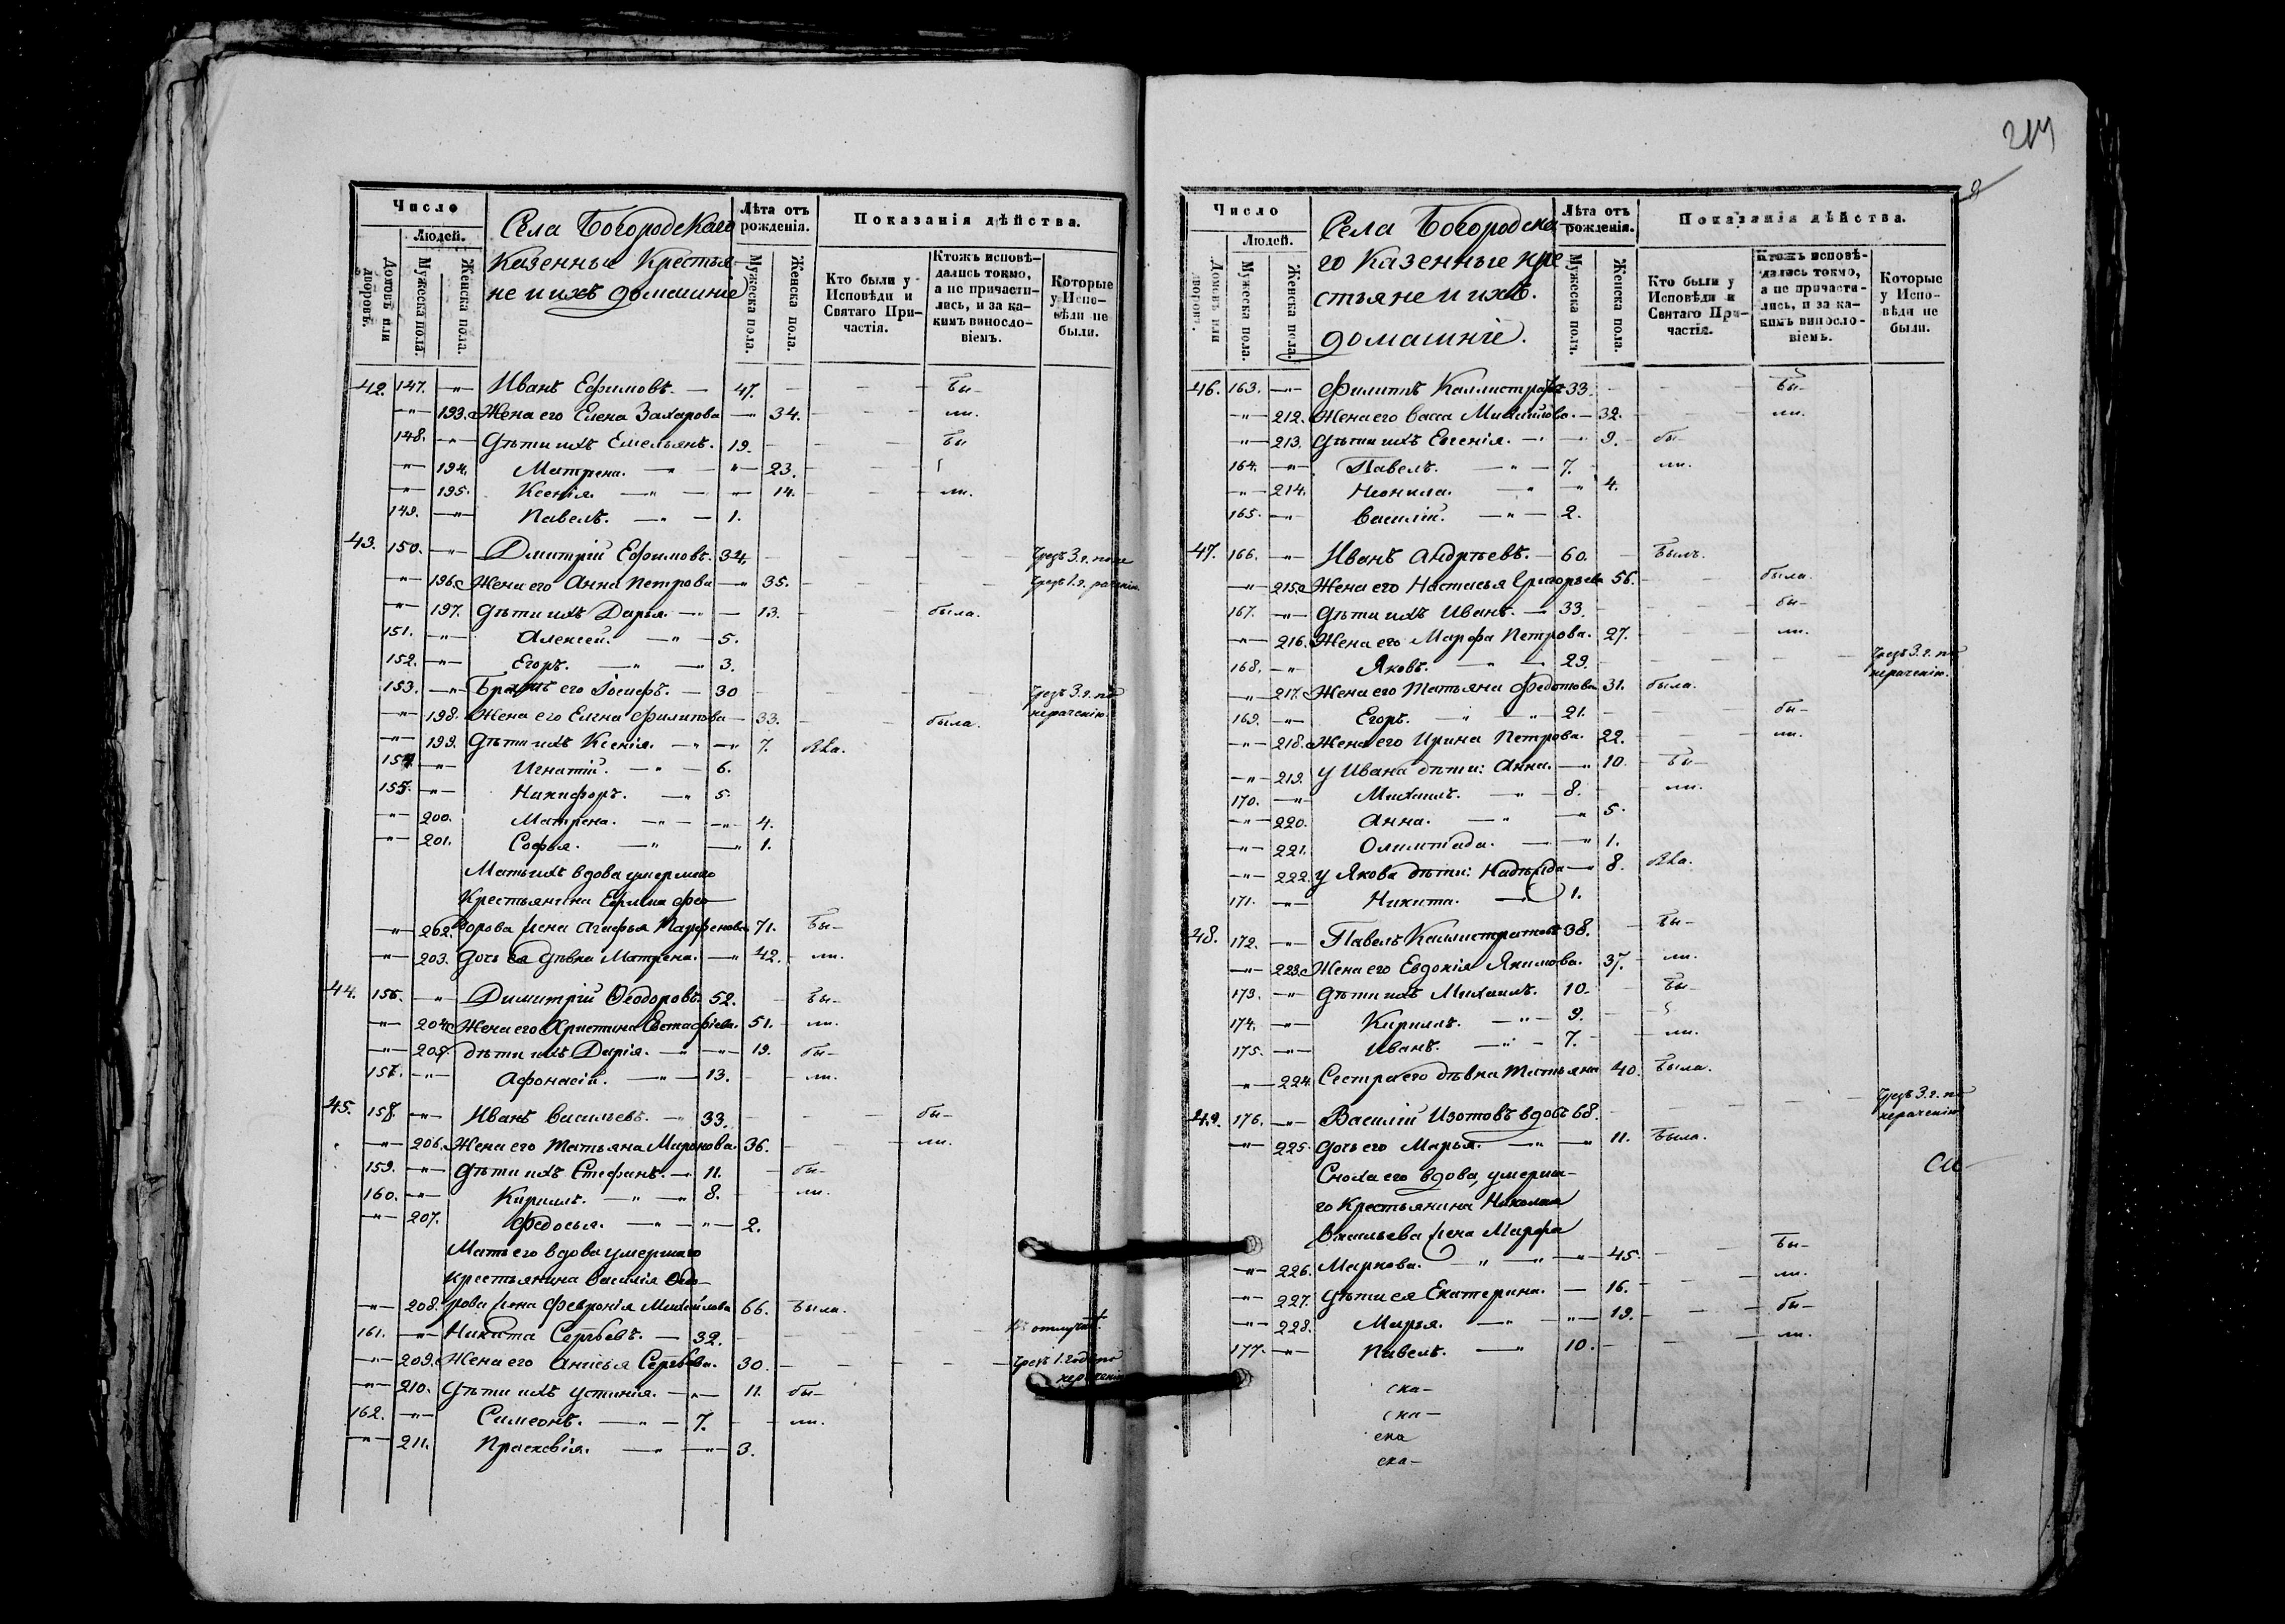 Число
Людей.
Домовъ или дворовъ.
Мужеска пола.
Женска пола.
Села Богородскаго
Казенные Крестья-
не и ихъ домашніе
Лѣта отъ рожденія.
Мужеска пола.
Женска пола.
Показанія дѣйства.
Кто были у Исповѣди и Святаго Причастія.
Ктожъ исповѣдались токмо, а не причастились, и за какимъ винословіемъ.
Которые у Исповѣди не были.
42. 147. —"— Иванъ Ефимовъ. — 47. — — Бы-
—"— 193. Жена его Елена Захарова —"— 34. — — ли.
148. —"— Дѣти ихъ Емельянъ. 19. — — Бы
—"— 194. Матрена. —"— 23. —
—"— 195. Ксенія. —"— 14. — — ли.
149. —"— Павелъ. —"— 1.
43. 150. —"— Димитрій Ефимовъ. 34. — — — Чрезъ 3. г. по не
—"— 196. Жена его Анна Петрова —"— 35. — — — Чрезъ 1. г. раченію.
—"— 197. Дѣти ихъ Дарья. —"— 13. — — была.
151. —"— Алексѣй. —"— 5.
152. —"— Егоръ. —"— 3.
153. —"— Братъ его Іосифъ. — 30 — — Чрезъ 3. г. по
нераченію.
—"— 198. Жена его Елена Филипова — 33. — — была.
—"— 199. Дѣти ихъ Ксенія. —"— 7.
154. —"— Игнатій. —"— 6.
155. —"— Никифоръ. —"— 5.
—"— 200. Матрена. —"— 4.
—"— 201. Софья. —"— 1.
Мать ихъ вдова умершаго
Крестьянина Ефима Фео-
—"— 202. дорова жена Агафья Парфенова 71. Бы-
—"— 203. Дочь ея дѣвка Матрена. —"— 42. — ли.
44. 156. —"— Димитрій Ѳеодоровъ. 52. — Бы-
—"— 204. Жена его Христина Евстафіева. 51. — ли.
—"— 205. Дѣти ихъ Дарія. —"— 19. бы-
157. —"— Афонасій. —"— 13. — ли.
45. 158. —"— Иванъ Васильевъ. —"— 33. — — бы-
—"— 206. Жена его Татьяна Миронова. 36. — — ли.
159. —"— Дѣти ихъ Стефанъ. — 11. — бы-
160. —"— Кириллъ. —"— 8. — ли.
—"— 207. Федосья. —"— 2.
Мать его вдова умершаго
крестьянина Василія Ѳедо-
—"— 208. рова жена Февронія Михайлова 66. Была.
161. —"— Никита Сергѣевъ. — 32. — — — отлучкѣ.
—"— 209. Жена его Анисья Сергѣева. 30. — — — Чрезъ 1. годъ по
нераченію
—"— 210. Дѣти ихъ Устинія. —"— 11. бы-
162. —"— Симеонъ. —"— 7. — ли.
—"— 211. Прасковія. —"— 3.
Число
Людей.
Домовъ или дворовъ.
Мужеска пола.
Женска пола.
Села Богородска-
го Казенные кре-
стьяне и ихъ.
домашніе.
Лѣта отъ рожденія.
Мужеска пола.
Женска пола.
Показанія дѣйства.
Кто были у Исповѣди и Святаго Причастія.
Ктожъ исповѣдались токмо, а не причастились, и за какимъ винословіемъ.
Которые у Исповѣди не были.
46. 163. —"— Филиппъ Каллистратовъ 33. — — Бы-
—"— 212. Жена его Васса Михайлова. — 32. — — ли.
—"— 213. Дѣти ихъ Евгенія. —"— 9. бы-
164. —"— Павелъ. —"— 7. ли.
—"— 214. Неонила. —"— 4.
165. —"— Василій. —"— 2.
47. 166. —"— Иванъ Андреевъ. — 60. — Былъ.
—"— 215. Жена его Настасья Григорьева 56. — — была.
167. —"— Дѣти ихъ Иванъ. — 33. — — бы-
—"— 216. Жена его Марфа Петрова. 27. — — ли.
168. —"— Яковъ. —"— 29. — — — Чрезъ 3. г. по
нераченію.
—"— 217. Жена его Татьяна Федотова 31. была.
169. —"— Егоръ. —"— 21. — — бы-
—"— 218. Жена его Ирина Петрова. 22. — — ли.
—"— 219. У Ивана дѣти: Анна. —"— 10. Бы-
170. —"— Михаилъ. —"— 8. — ли.
—"— 220. Анна. —"— 5.
—"— 221. Олимпіада. —"— 1.
—"— 222. У Якова дѣти: Надежда —"— 8.
171. —"— Никита. — 1.
48. 172. —"— Павелъ Каллистратовъ 38. — Бы-
—"— 223. Жена его Евдокія Якимова. 37. — ли.
173. —"— Дѣти ихъ Михаилъ. 10. Бы-
174. —"— Кириллъ. —"— 9. —
175. —"— Иванъ. —"— 7. — ли.
—"— 224. Сестра его дѣвка Татьяна 40. Была.
49. 176. —"— Василій Изотовъ вдовъ 68. — — — Чрезъ 3. г. по
нераченію
—"— 225. Дочь его Марья. —"— 11. Была.
Сноха его вдова, умерша-
го Крестьянина Николая
Васильева жена Марфа
—"— 226. Маркова. —"— 45. — — Бы-
—"— 227. Дѣти ея Екатерина. — 16. — — ли.
—"— 228. Марья. —"— 19. — — бы-
177. —"— Павелъ. —"— 10. — — ли.
ска-
ска-
ска
ска-